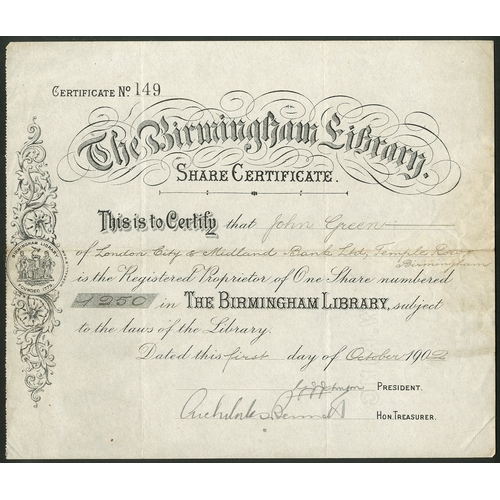 CERTIFICATE No 149
The Birmingham Library.
SHARE CERTIFICATE.
This is to Certify that John Green
of London City & Midland Bank Ltd, Temple Row
Birmingham
is the Registered Proprietor of One Share numbered
1250 in THE BIRMINGHAM LIBRARY, subject
to the laws of the Library.
Dated this first day of October 1902
PRESIDENT.
HON. TREASURER.
BIRMINGHAM LIBRARY
FOUNDED 1779